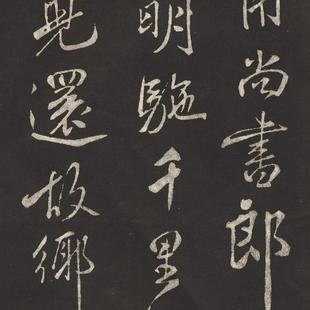 用尚書郎
明駞千里
兒還故鄉